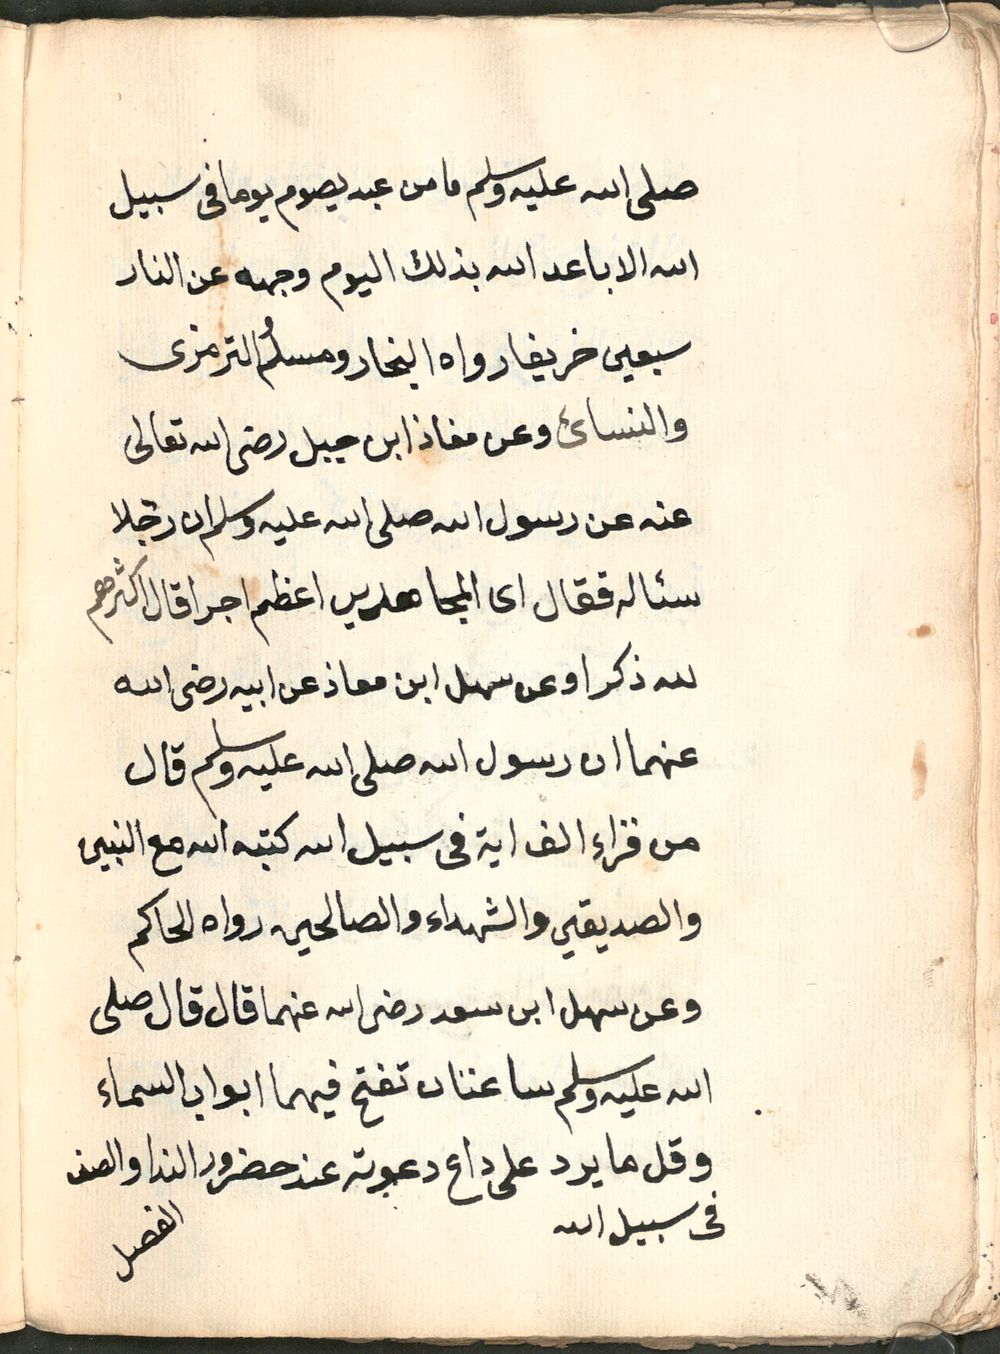 صلى الله عليه وسلم ما من عبد يصوم يوما فى سبيل
الله الا باعد الله بذلك اليوم وجهه عن النار
سبعين خريفا رواه البخار ومسلم الترمزى
والنسائ وعن معاذ ابن جبل رضى الله تعالى
عنه عن رسول الله صلى الله عليه وسلم ان رجلا
سئاله فقال اى المجاهدين اعظم اجرا قال اكثرهم
لله ذكرا وعن سهل ابن معاذ عن ابيه رضى الله
عنهما ان رسول الله صلى الله عليه وسلم قال
من قراء الف اية فى سبيل الله كتبه الله مع النبين
والصديقين والشهداء والصالحين رواه الحاكم
وعن سهل ابن سعد رضى الله عنهما قال قال صلى
الله عليه وسلم ساعتان تفتح فيهما ابواب السماء
وقل ما يرد على داع دعوته عند حضرور الندا والصف
فى سبيل الله
الفصل